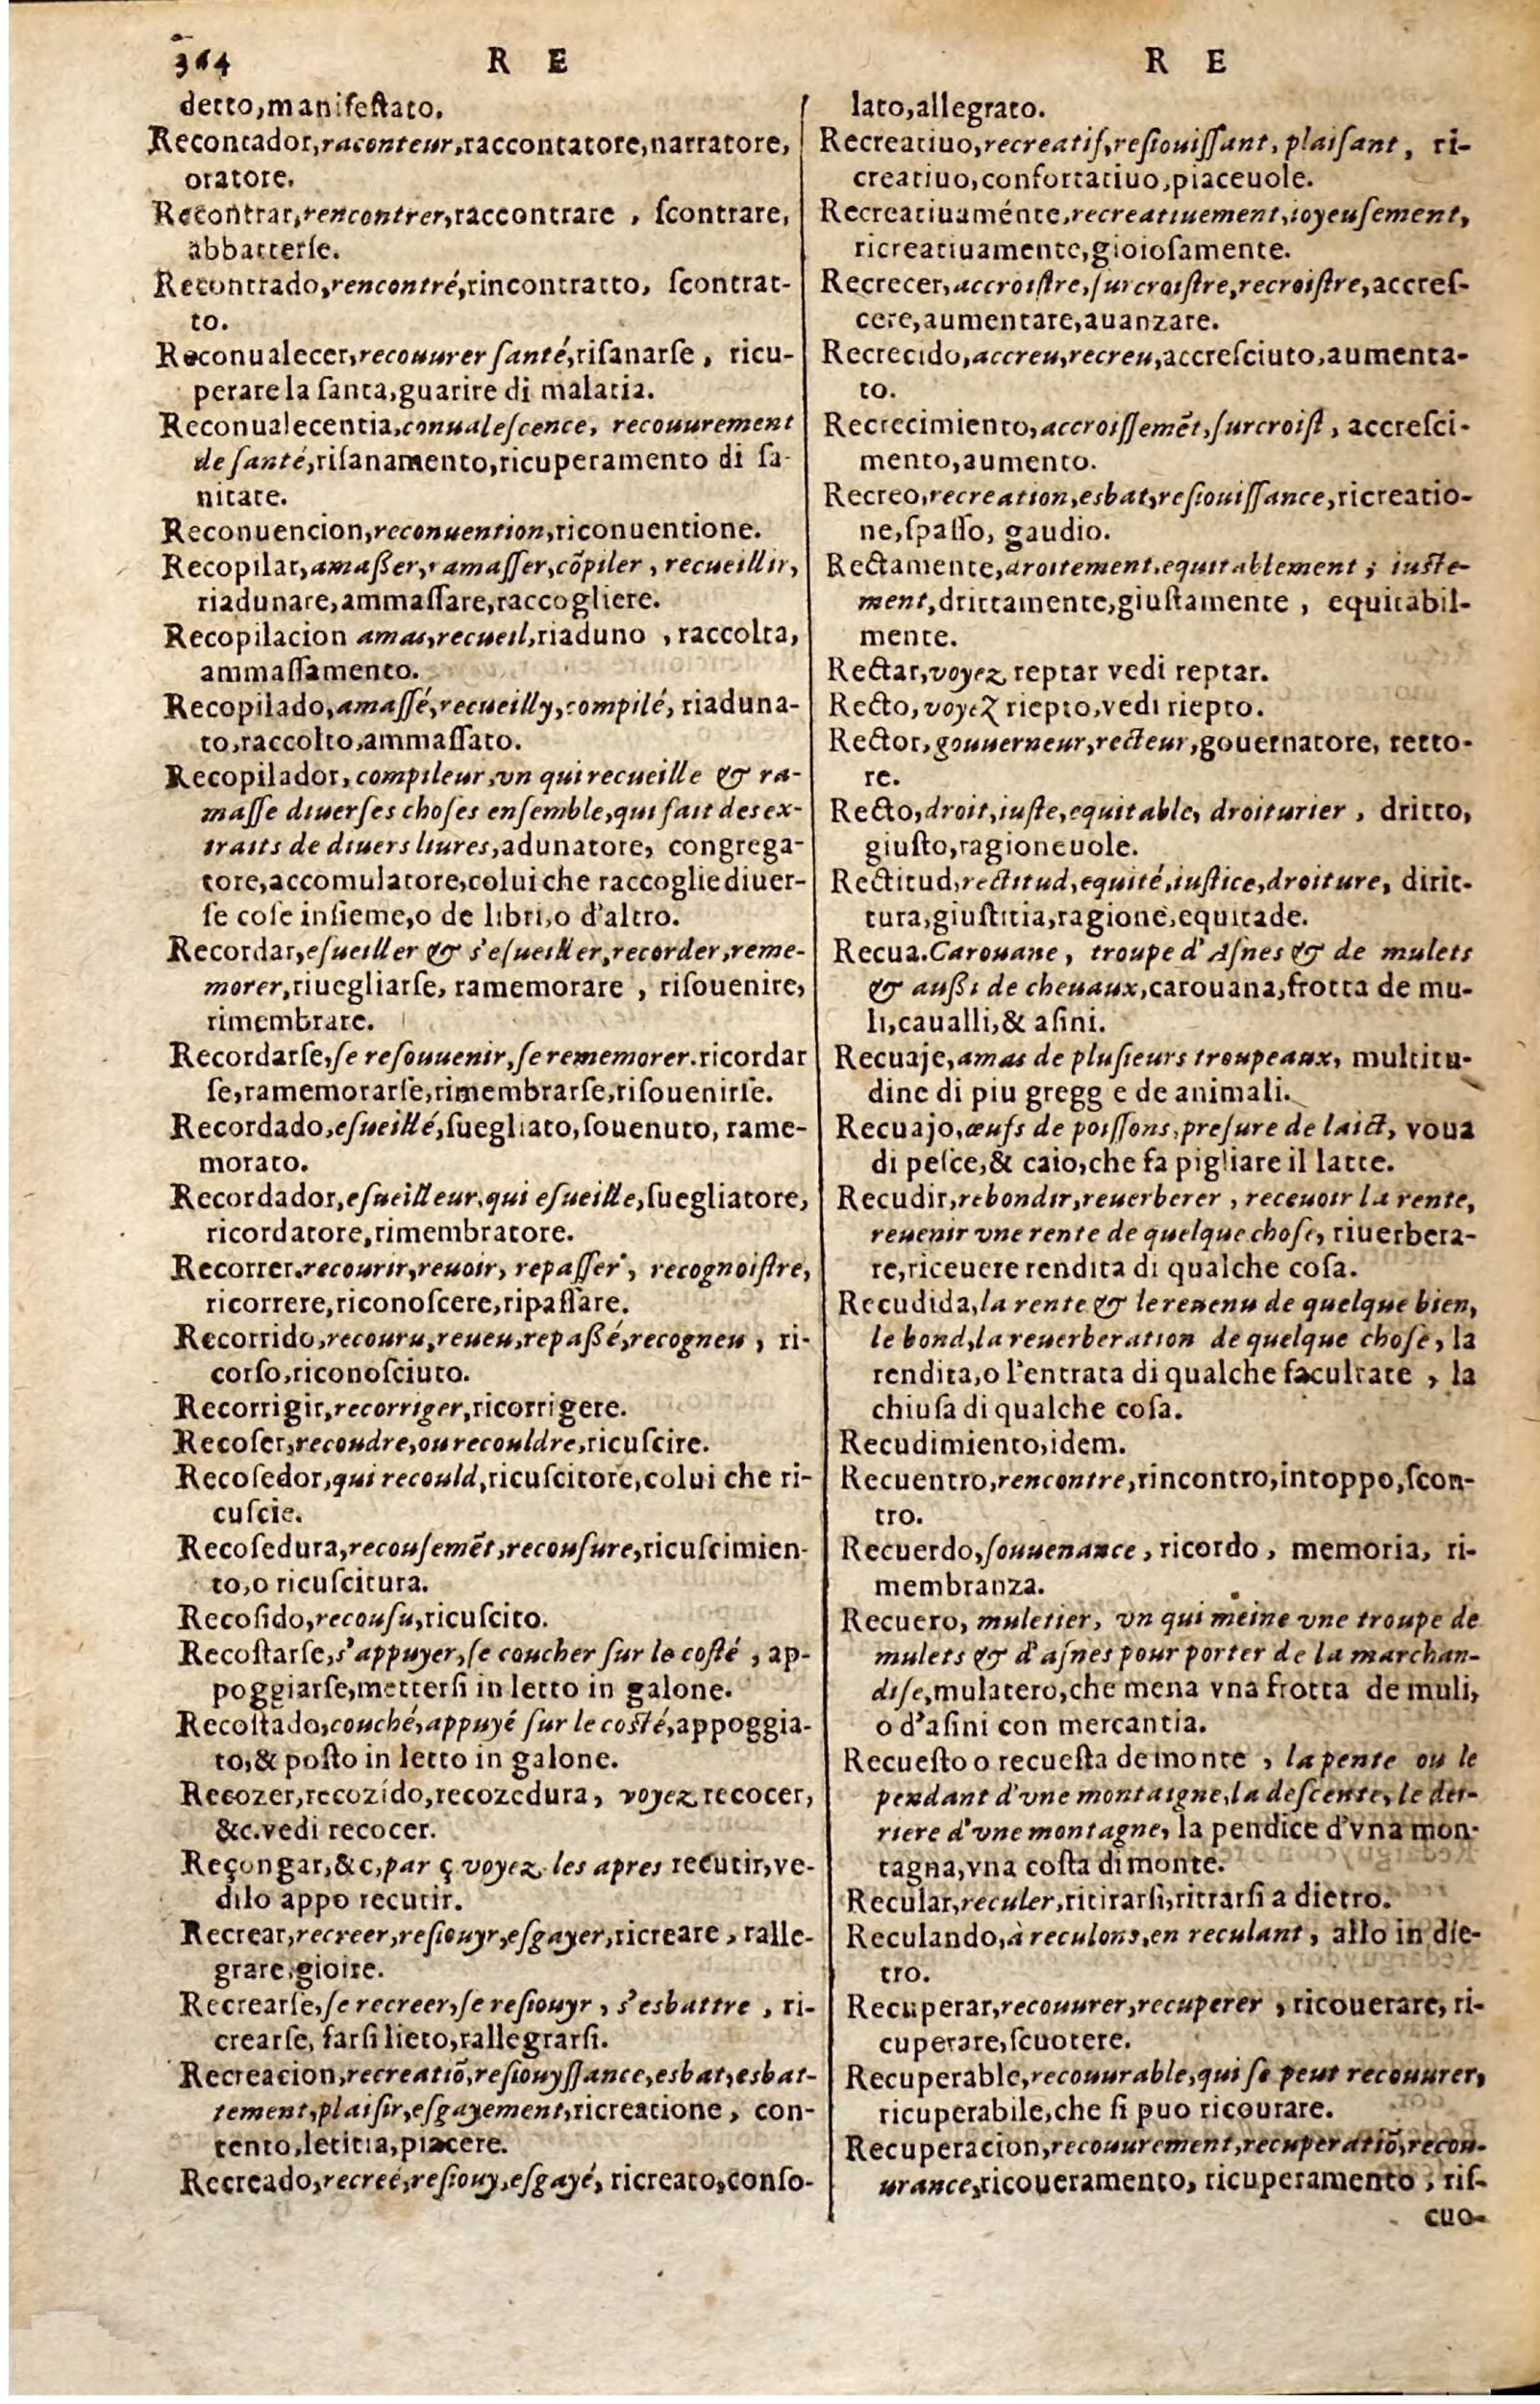 364 R E
detto,manifeſtato.
Recontador,raconteur,raccontatore,narratore,
oratore.
Recontrar,rencontrer,raccontrare , ſcontrare,
abbatterſe.
Recontrado,rencontré,rincontratto, ſcontrat-
to.
Reconualecer,recouurer ſanté,riſanarſe , ricu-
perare la ſanta,guarire di malatia.
Reconualecentia,conualeſcence, recouurement
de ſanté,riſanamento,ricuperamento di ſa-
nitate.
Reconuencion,reconuention,riconuentione.
Recopilar,amaßer,ramaſſer,cõpiler , recueillir,
riadunare,ammaſſare,raccogliere.
Recopilacion amas,recueil,riaduno , raccolta,
ammaſſamento.
Recopilado,amaſſé,recueilly,compilé, riaduna-
to,raccolto,ammaſſato.
Recopilador, compileur,vn qui recueille & ra-
maſſe diuerſes choſes enſemble,qui fait des ex-
traits de diuers liures,adunatore, congrega-
tore,accomulatore,colui che raccoglie diuer-
ſe coſe inſieme,o de libri,o d'altro.
Recordar,eſueiller & s'eſueiller,recorder,reme-
morer,riuegliarſe, ramemorare , riſouenire,
rimembrare.
Recordarſe,ſe reſouuenir,ſe rememorer.ricordar
ſe,ramemorarſe,rimembrarſe,riſouenirſe.
Recordado,eſueillé,ſuegliato,ſouenuto, rame-
morato.
Recordador,eſueilleur,qui eſueille,ſuegliatore,
ricordatore,rimembratore.
Recorrer.recourir,reuoir, repaſſer , recognoiſtre,
ricorrere,riconoſcere,ripaſſare.
Recorrido,recouru,reueu,repaßé,recogneu , ri-
corſo,riconoſciuto.
Recorrigir,recorriger,ricorrigere.
Recoſer,recoudre,ou recouldre,ricuſcire.
Recoſedor,qui recould,ricuſcitore,colui che ri-
cuſcie.
Recoſedura,recouſemẽt,recouſure,ricuſcimien-
to,o ricuſcitura.
Recoſido,recouſu,ricuſcito.
Recoſtarſe,s'appuyer,ſe coucher ſur le coſté , ap-
poggiarſe,metterſi in letto in galone.
Recoſtado,couché,appuyé ſur le coſté,appoggia-
to,& poſto in letto in galone.
Recozer,recozido,recozedura, voyez recocer,
&c.vedi recocer.
Reçongar,&c,par ç voyez les apres recutir,ve-
dilo appo recutir.
Recrear,recreer,reſiouyr,eſgayer,ricreare , ralle-
grare,gioire.
Recrearſe,ſe recreer,ſe reſiouyr , s'esbattre , ri-
crearſe, farſi lieto,rallegrarſi.
Recreacion,recreatiõ,reſiouyſſance,esbat,esbat-
tement,plaiſir,eſgayement,ricreatione, con-
tento,letitia,piacere.
Recreado,recreé,reſiouy,eſgayé, ricreato,conſo-
R E
lato,allegrato.
Recreatiuo,recreatif,reſiouiſſant, plaiſant, ri-
creatiuo,confortatiuo,piaceuole.
Recreatiuaménte,recreatiuement,ioyeuſement,
ricreatiuamente,gioioſamente.
Recrecer,accroiſtre,ſurcroiſtre,recroiſtre,accreſ-
cere,aumentare,auanzare.
Recrecido,accreu,recreu,accreſciuto,aumenta-
to.
Recrecimiento,accroiſſemẽt,ſurcroiſt , accreſci-
mento,aumento.
Recreo,recreation,esbat,reſiouiſſance,ricreatio-
ne,ſpaſſo, gaudio.
Rectamente,droitement,equitablement ; iuſte-
ment,drittamente,giuſtamente , equitabil-
mente.
Rectar,voyez reptar vedi reptar.
Recto,voyez riepto,vedi riepto.
Rector,gouuerneur,recteur,gouernatore, retto-
re.
Recto,droit,iuſte,equitable, droiturier , dritto,
giuſto,ragioneuole.
Rectitud,rectitud,equité,iuſtice,droiture, dirit-
tura,giuſtitia,ragione,equitade.
Recua.Carouane, troupe d'Aſnes & de mulets
& außi de cheuaux,carouana,frotta de mu-
li,caualli,& aſini.
Recuaje,amas de pluſieurs troupeaux, multitu-
dine di piu gregg e de animali.
Recuajo,œufs de poiſſons,preſure de laict, voua
di peſce,& caio,che fa pigliare il latte.
Recudir,rebondir,reuerberer , receuoir la rente,
reuenir vne rente de quelque choſe, riuerbera-
re,riceuere rendita di qualche coſa.
Recudida,la rente & le reuenu de quelque bien,
le bond,la reuerberation de quelque choſe, la
rendita,o l'entrata di qualche facultate , la
chiuſa di qualche coſa.
Recudimiento,idem.
Recuentro,rencontre,rincontro,intoppo,ſcon-
tro.
Recuerdo,ſouuenance, ricordo, memoria, ri-
membranza.
Recuero, muletier, vn qui meine vne troupe de
mulets & d'aſnes pour porter de la marchan-
diſe,mulatero,che mena vna frotta de muli,
o d'aſini con mercantia.
Recueſto o recueſta de monte , la pente ou le
pendant d'vne montaigne,la deſcente, le der-
riere d'vne montagne, la pendice d'vna mon-
tagna,vna coſta di monte.
Recular,reculer,ritirarſi,ritrarſi a dietro.
Reculando,à reculons,en reculant, allo in die-
tro.
Recuperar,recouurer,recuperer , ricouerare, ri-
cuperare,ſcuotere.
Recuperable,recouurable,qui ſe peut recouurer,
ricuperabile,che ſi puo ricourare.
Recuperacion,recouurement,recuperatiõ,recou-
urance,ricoueramento, ricuperamento , riſ-
cuo-